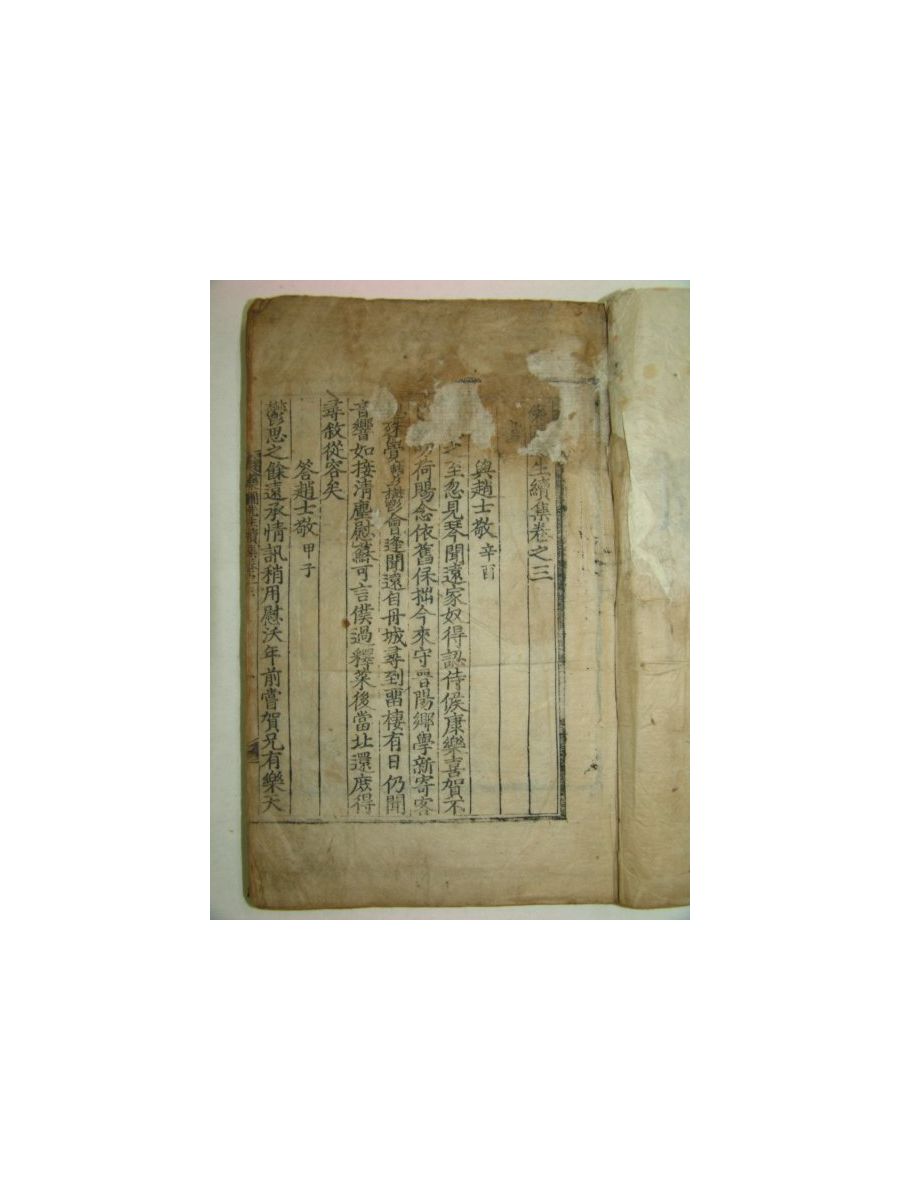 生續集卷之三
與趙士敬 辛酉
至忽見琴聞遠家奴得認侍候康樂喜賀不
荷賜念依舊保拙今來守晋陽鄉學新寄客
覺鬱會逢聞遠自丹城尋到留棲有日仍聞
音響如接淸塵慰蘇可言僕過釋菜後當北還庶得
尋敘從容矣
答趙士敬 甲子
鬱思之餘遠承情訊稍用慰沃年前嘗賀兄有樂天